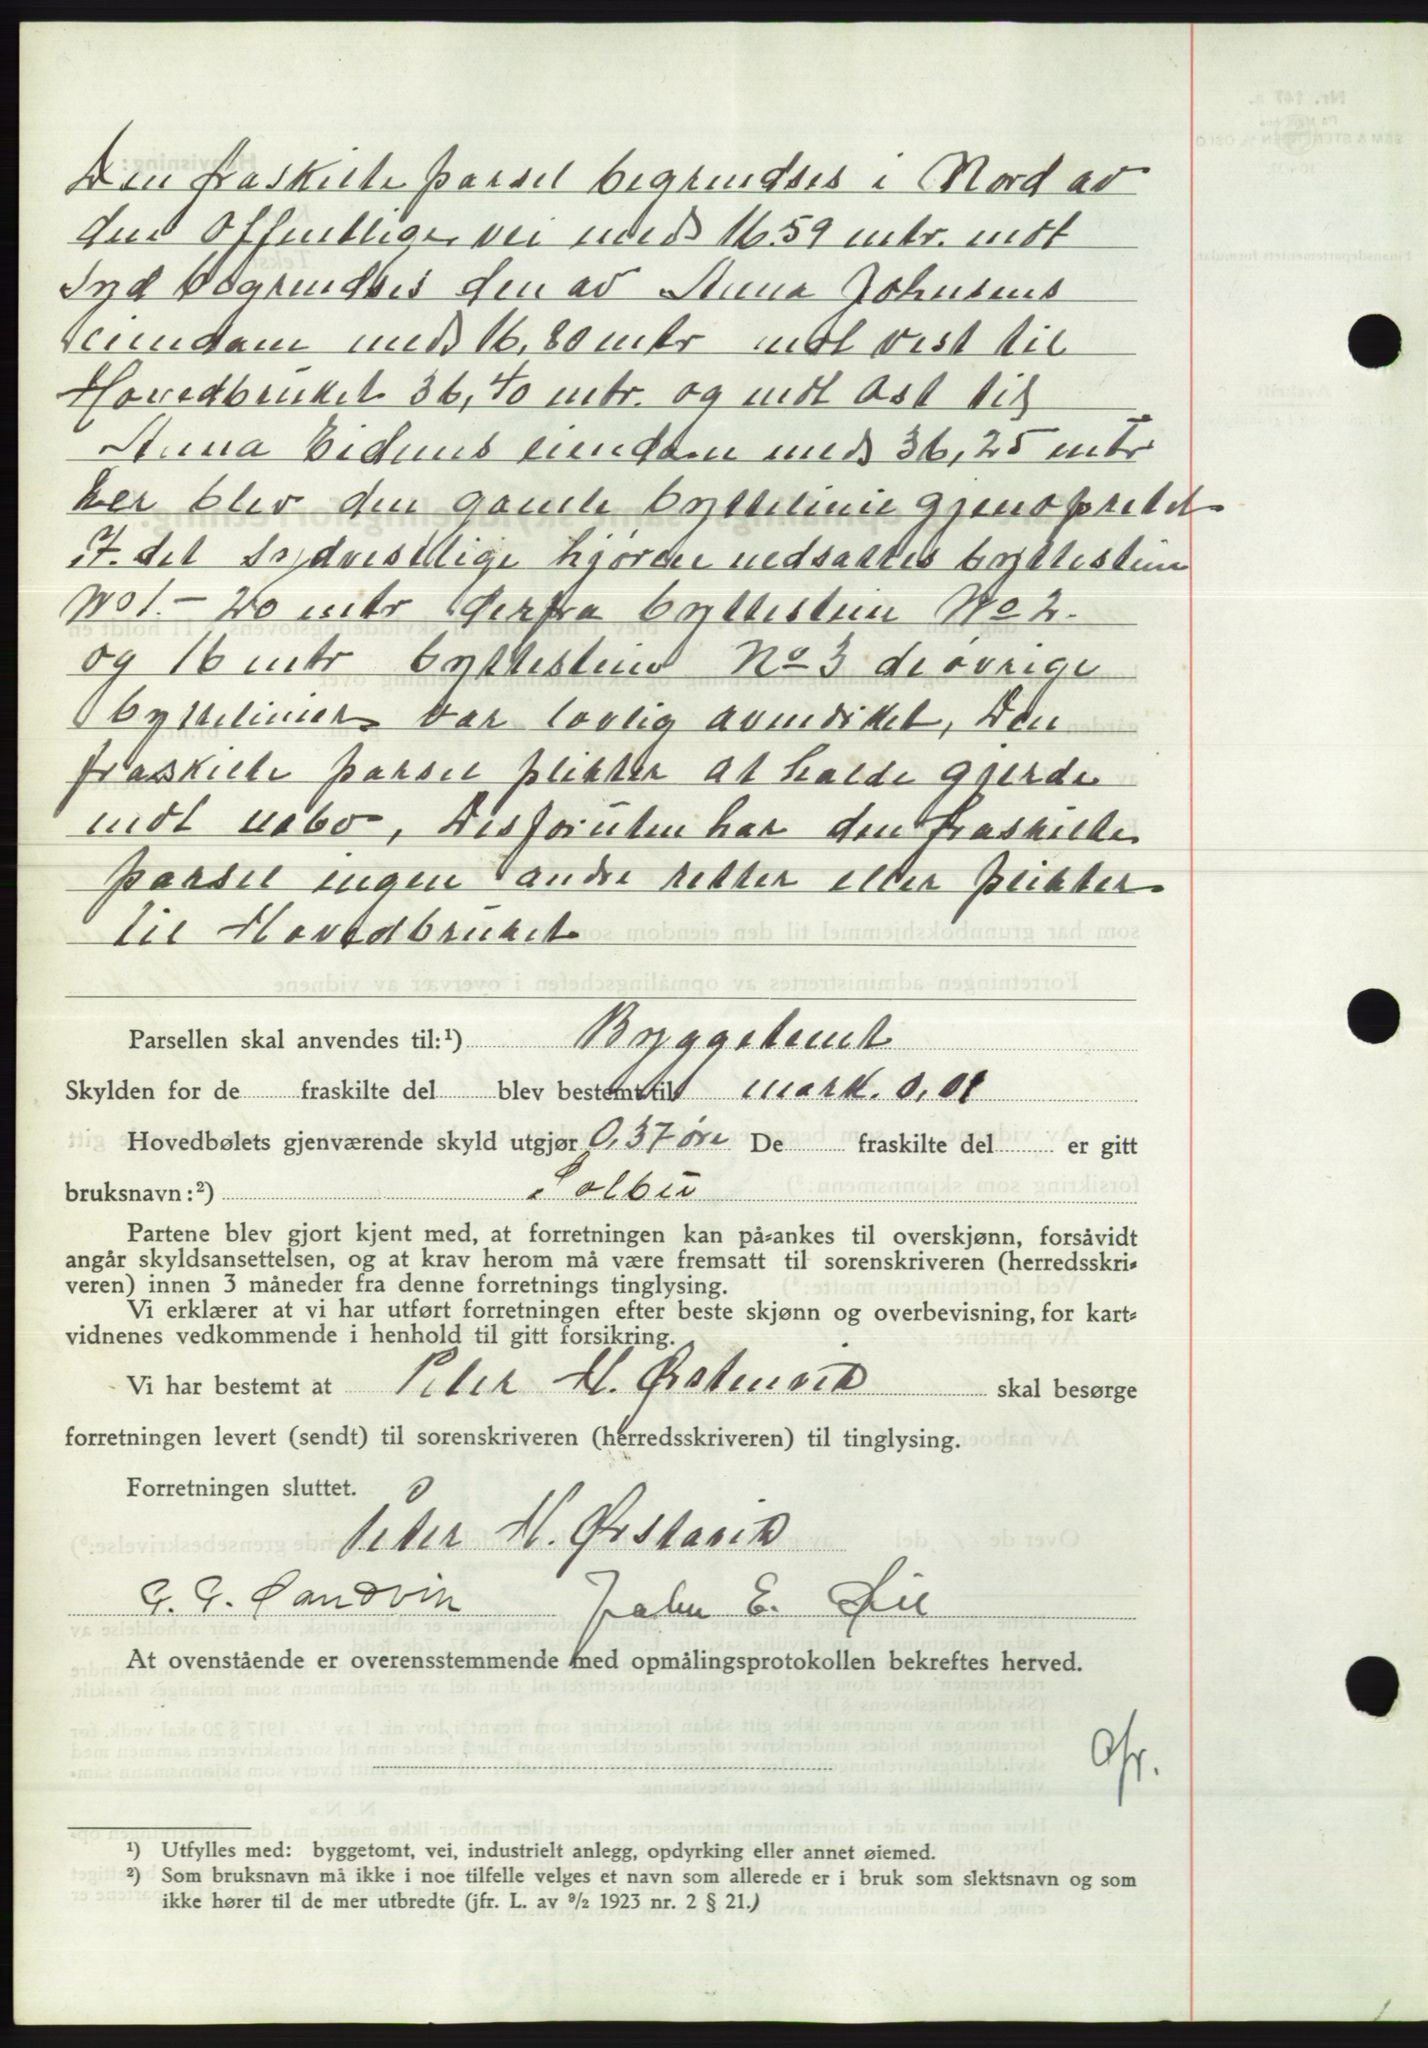 Den fraskilte parsel begrendses i Nord av
den offentlige vei med 16.59 mtr. mot
Syd begrendses den av Anna Johnsens
eiendam med 16,80 mtr mot vest til
Hovedbruket 36,40 mtr. og mot Ost til
Anna Eidems eiendam med 36,25 mtr
her blev den gamle byttelinie gjenopretet
I det Sydvestlige hjörne nedsattes byttestein
No 1. – 20 mtr derfra byttestein No 2.
og 16 mtr byttestein No 3 de övrige
byttelinier var lovlig avmerket, Den
fraskilte parsel plikter at holde gjerde
mot nabo, Desforuten har den fraskilte
parsel ingen andre retter eller plikter
til Hovedbruket
Parsellen skal anvendes til:¹) Byggetomt
Skylden for de fraskilte del blev bestemt til mark. 0,01
Hovedbølets gjenværende skyld utgjør 0,37 øre De fraskilte del er gitt
bruksnavn:²) Solbu
Partene blev gjort kjent med, at forretningen kan på-ankes til overskjønn, forsåvidt
angår skyldsansettelsen, og at krav herom må være fremsatt til sorenskriveren (herredsskri-
veren) innen 3 måneder fra denne forretnings tinglysing.
Vi erklærer at vi har utført forretningen efter beste skjønn og overbevisning, for kart-
vidnenes vedkommende i henhold til gitt forsikring.
Vi har bestemt at Peter H. Ørstenvik skal besørge
forretningen levert (sendt) til sorenskriveren (herredsskriveren) til tinglysing.
Forretningen sluttet.
Peter H. Ørstavik
G. G. Sandvin John E. Øie
At ovenstående er overensstemmende med opmålingsprotokollen bekreftes herved.
¹) Utfylles med: byggetomt, vei, industrielt anlegg, opdyrking eller annet øiemed.
²) Som bruksnavn må ikke i noe tilfelle velges et navn som allerede er i bruk som slektsnavn og som
ikke hører til de mer utbredte (jfr. L. av ⁹/₂ 1923 nr. 2 § 21.)